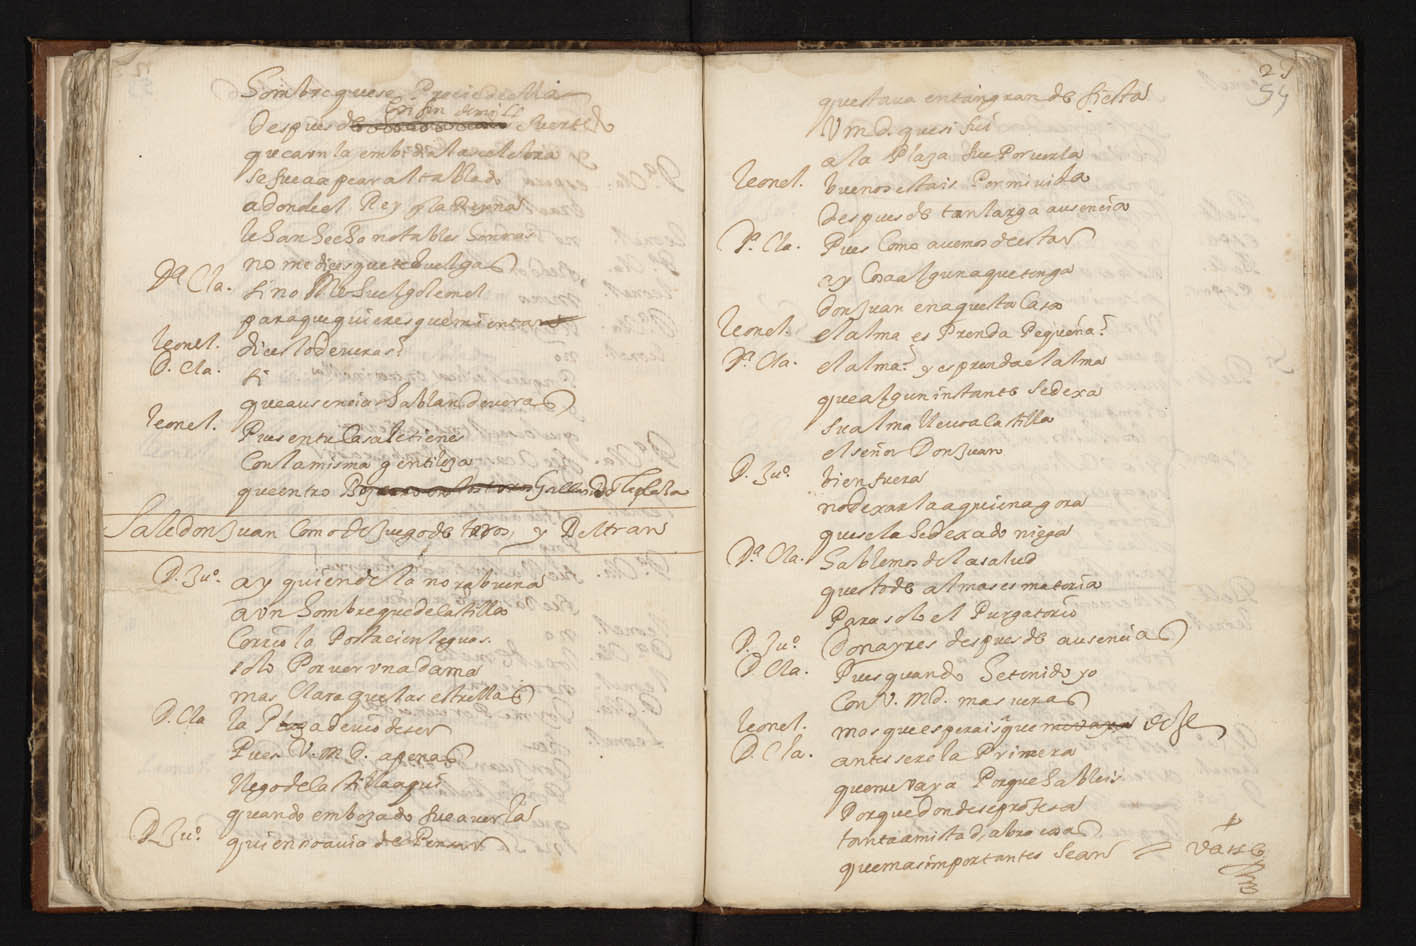 hombre que se Precie della
en fin de mill
despues de suertes
que con la embidia la celebra
se fue a apear al tablado
a donde el Rey y la Reyna
le han hecho notables honrras
no me dices que te huelgas
Dª Cla. si no me huelgo leonel
para que quieres que mienta
leonel. dices lo de veras?
D. Cla. si
que ausencias hablan de veras
leonel. Pues en tu Casa le tienes
Con la misma gentileza
que entro Gallardo
Sale don Juan Como de Juego de toros, y Beltran
D. Juº. ay quien de la norabuena
a vn hombre que de Castilla
Corrio la Posta cien leguas.
solo Por ver vna dama
mas Clara que las estrellas
D. Cla la Plaza deuio de ser
Pues V. M. D. apenas
llego de Castilla aqui
quando embozado fue a verla
D. Juº. quien no auia de Pensar
27
54
que staua en tan grande fiesta
V m d. que si fui
a la Plaza fue Por verla
leonel. bueno estais Por mi vida
despues de tan larga ausencia
Dª. Cla. Pues Como auemos de estar
ay Cosa alguna que tenga
don Juan en aquesta Casa
leonel. el alma es Prenda Pequeña?
Dª. Cla. el alma? y es prenda el alma
que algun instante se dexa
su alma lleuo a Castilla
el señor Don Juan
D. Juº. bien fuera
no dexarla a quien agora
que se la he dexado niega
Dª. Cla. hablemos de la salud
que esto de almas es materia
Para solo el Purgatorio
D. Juº. Donayres despues de ausencia
D Cla. Pues quando he tenido yo
Con V. Md. mas veras
leonel. mas que esperais que
D. Cla. antes sere la Primera
que me vaya Porque hableis
Porque donde se professa
tanta amistad, abra cosas
que mas importantes sean vase